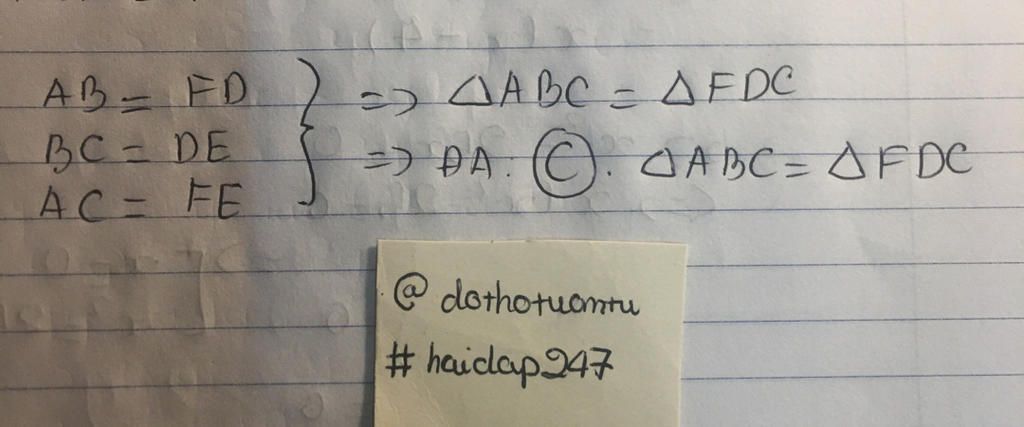 AB = FD
BC = DE
AC = FE
=> △ABC = △FDC
=> ĐA: C. △ABC = △FDC
@ dothotuantu
# haidap247